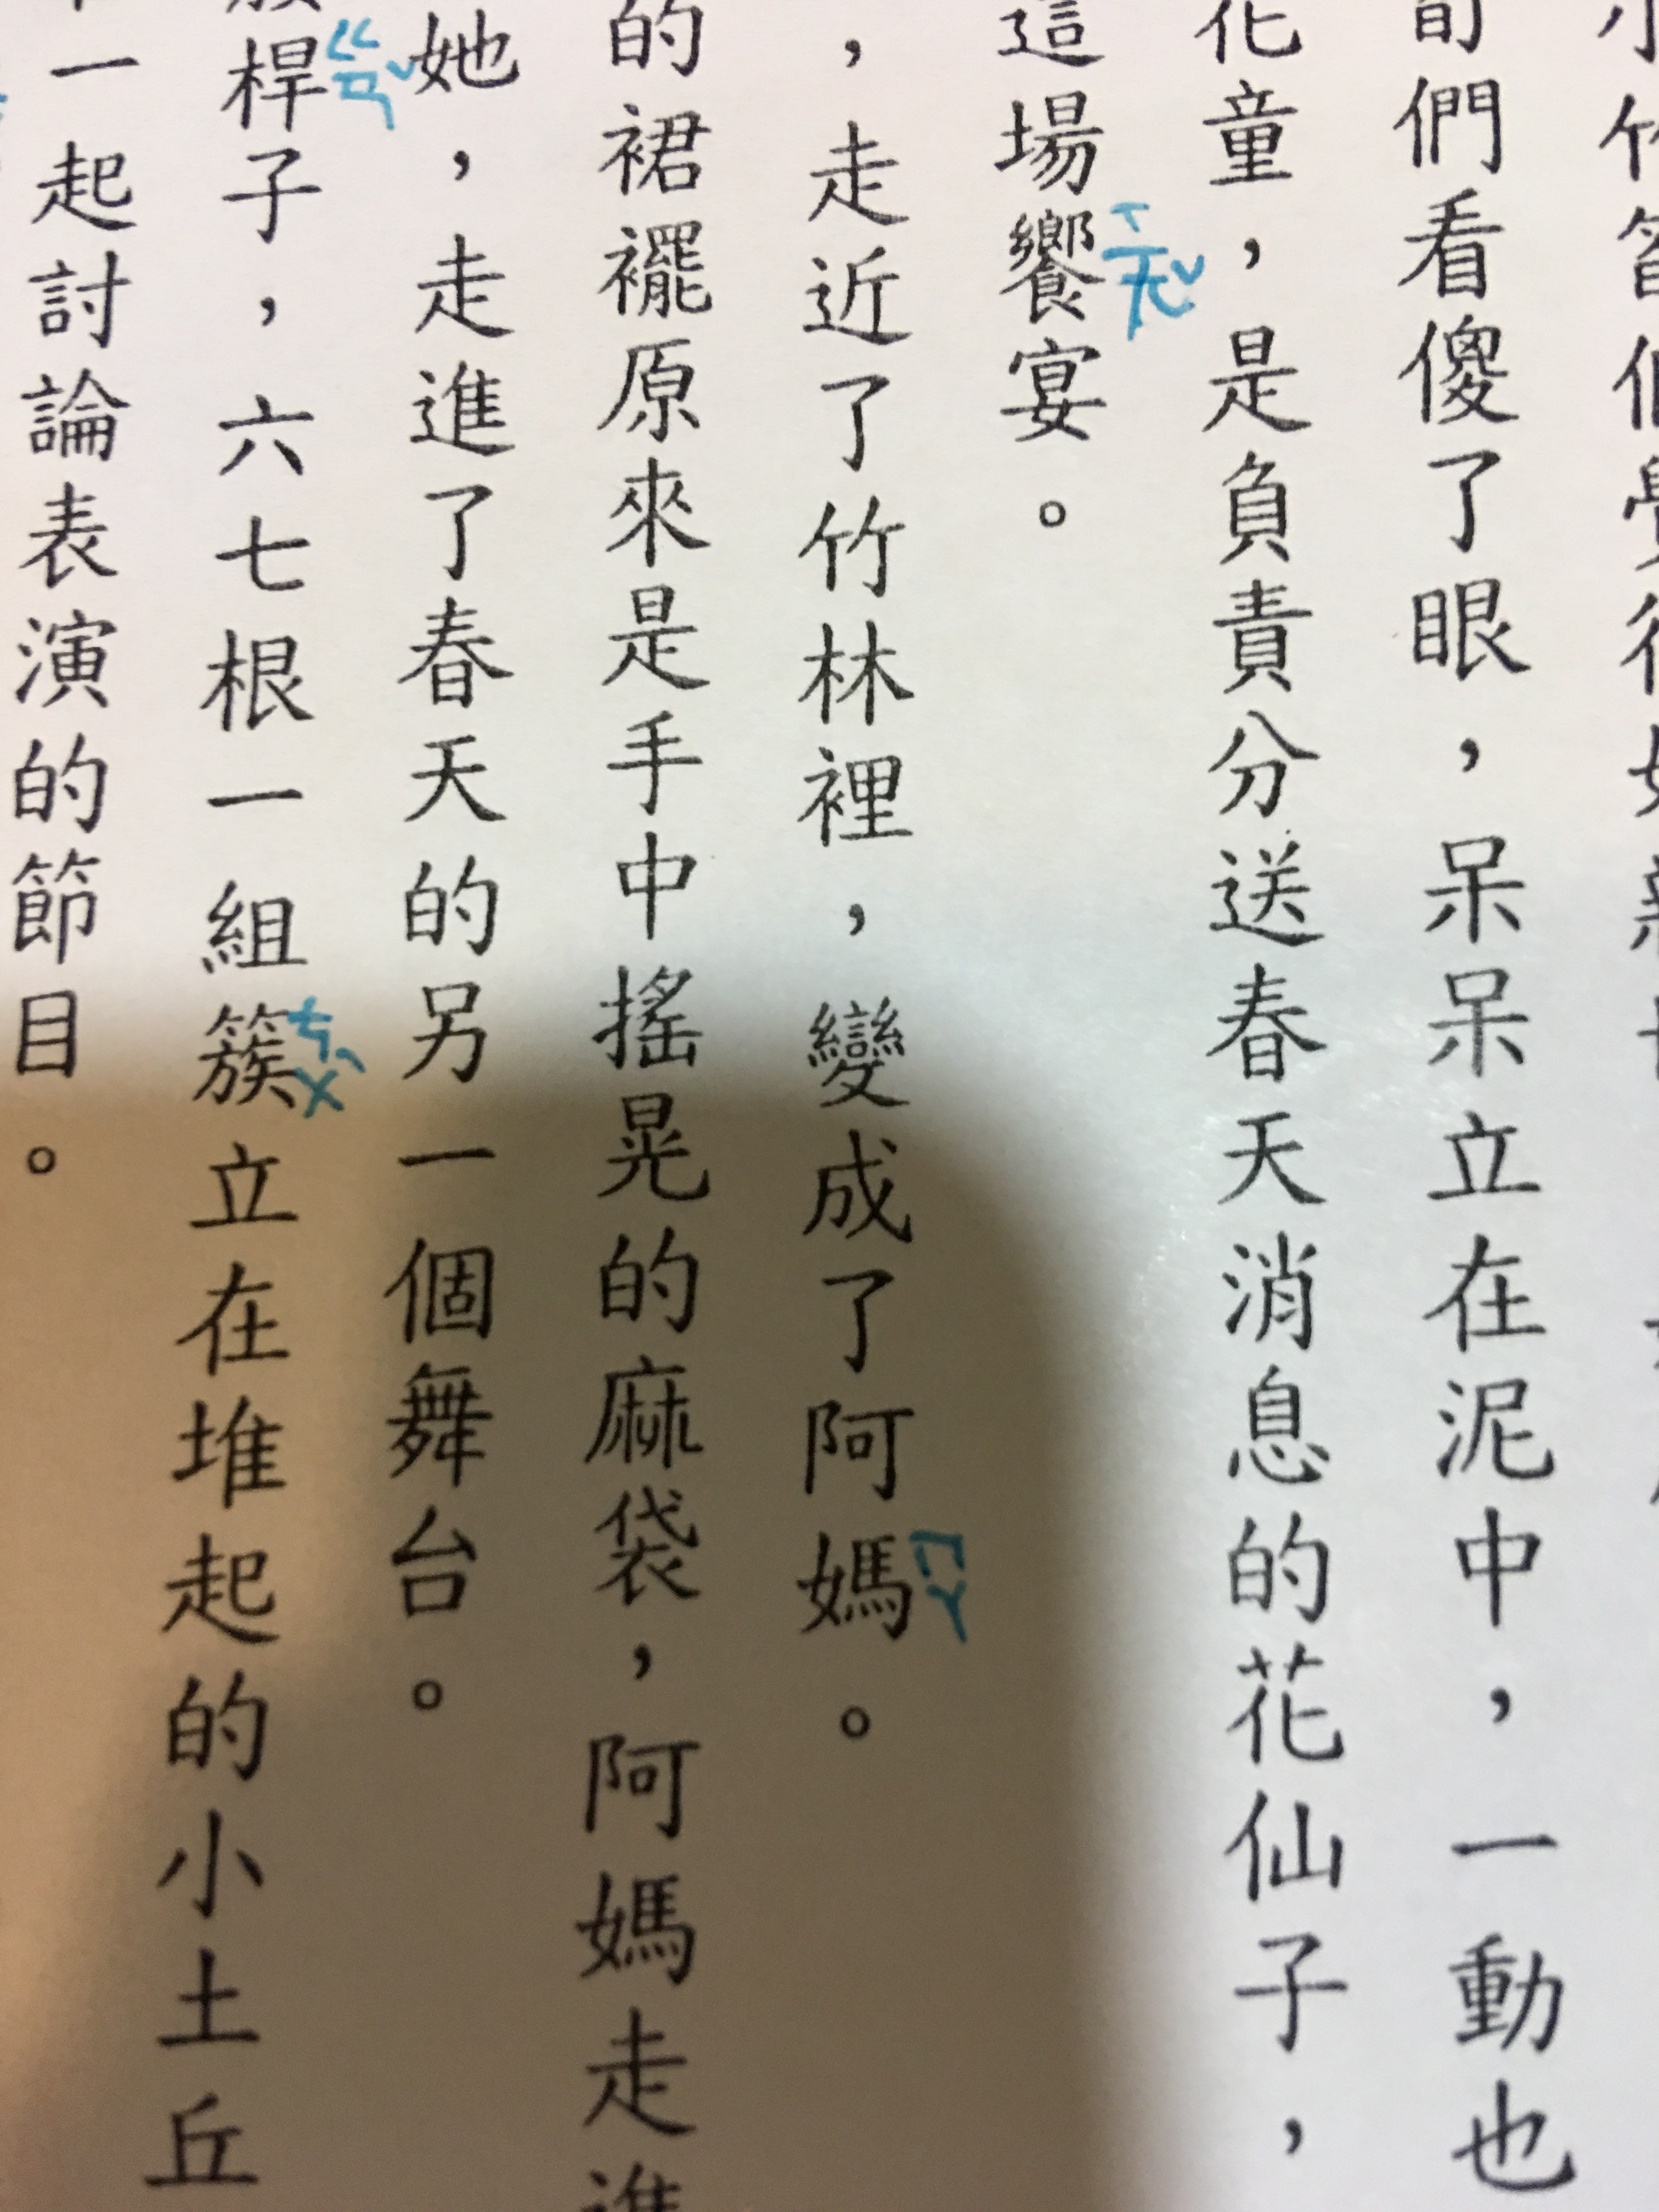 們看傻了眼，呆呆立在泥中，一動也
花童，是負責分送春天消息的花仙子，
這場饗宴。
ㄒㄧㄤˇ
，走近了竹林裡，變成了阿媽。
ㄇㄚ
的裙襬原來是手中搖晃的麻袋，阿媽走進
她，走進了春天的另一個舞台。
桿子，六七根一組簇立在堆起的小土丘
ㄍㄢˇ
ㄘㄨˋ
一起討論表演的節目。